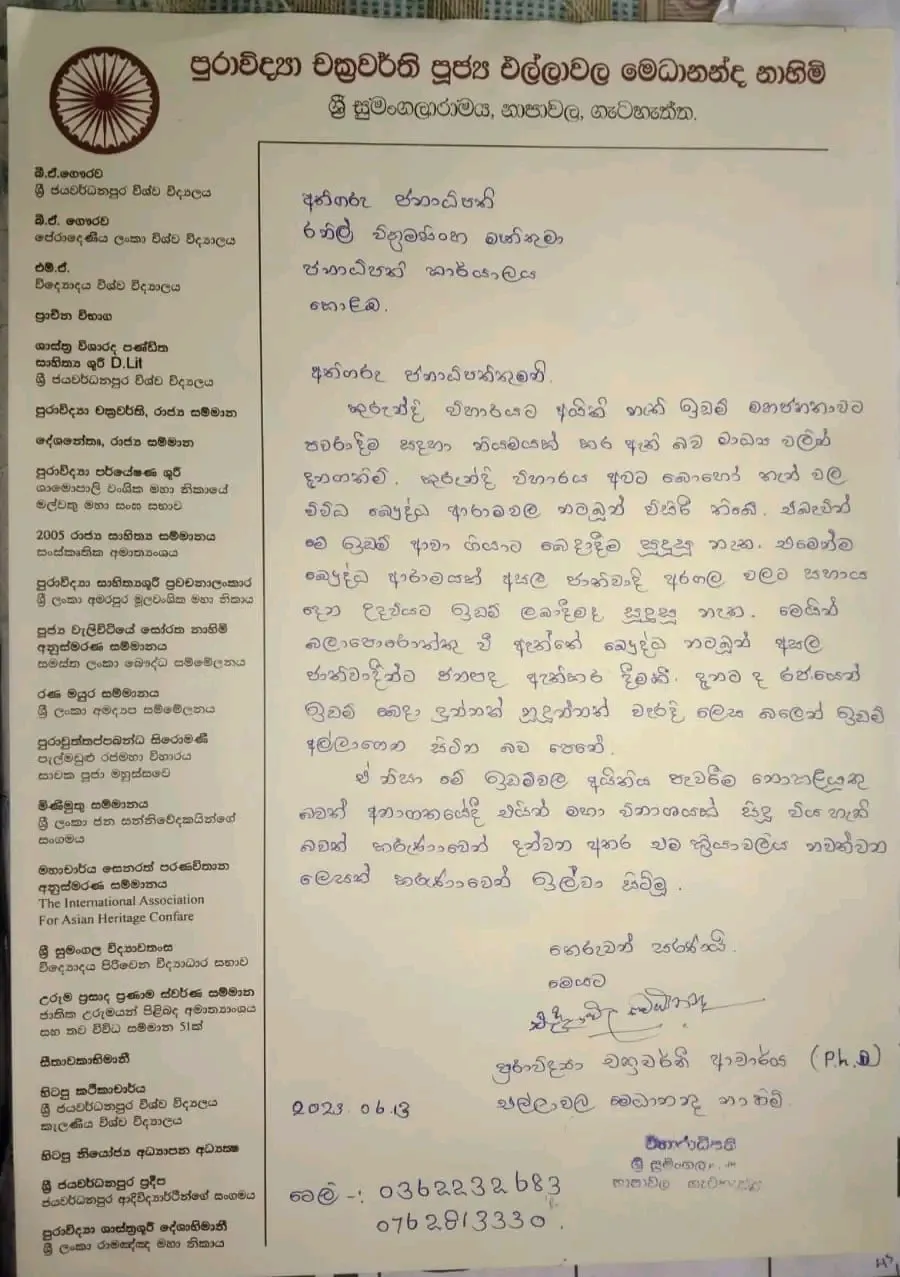 පුරාවිද්‍යා චක්‍රවර්ති පූජ්‍ය එල්ලාවල මෙධානන්ද නාහිමි
ශ්‍රී සුමංගලාරාමය, නාපාවල, ගැටහැත්ත.
බී.ඒ.ගෞරව
ශ්‍රී ජයවර්ධනපුර විශ්ව විද්‍යාලය
බී.ඒ. ගෞරව
පේරාදෙණිය ලංකා විශ්ව විද්‍යාලය
එම්.ඒ.
විද්‍යොදය විශ්ව විද්‍යාලය
ප්‍රාචීන විභාග
ශාස්ත්‍ර විශාරද පණ්ඩිත
සාහිත්‍ය ශූරී D.Lit
ශ්‍රී ජයවර්ධනපුර විශ්ව විද්‍යාලය
පුරාවිද්‍යා චක්‍රවර්ති, රාජ්‍ය සම්මාන
දේශනේත්‍ර, රාජ්‍ය සම්මාන
පුරාවිද්‍යා පර්යේෂණ ශූරී
ශාමොපාලි වංශික මහා නිකායේ
මල්වතු මහා සංඝ සභාව
2005 රාජ්‍ය සාහිත්‍ය සම්මානය
සංස්කෘතික අමාත්‍යංශය
පුරාවිද්‍යා සාහිත්‍යශූරී ප්‍රවචනාලංකාර
ශ්‍රී ලංකා අමරපුර මූලවංශික මහා නිකාය
පූජ්‍ය වැලිවිටියේ සෝරත නාහිමි
අනුස්මරණ සම්මානය
සමස්ත ලංකා බෞද්ධ සම්මේලනය
රණ මයුර සම්මානය
ශ්‍රී ලංකා අමද්‍යප සම්මේලනය
පුරාවුත්තප්පබන්ධ සිරොමණී
පැල්මඩුළු රජමහා විහාරය
සාවක පූජා මහුස්සවේ
මිණිමුතු සම්මානය
ශ්‍රී ලංකා ජන සන්නිවේදකයින්ගේ
සංගමය
මහාචාර්ය සෙනරත් පරණවිතාන
අනුස්මරණ සම්මානය
The International Association
For Asian Heritage Confare
ශ්‍රී සුමංගල විද්‍යාවතංස
විද්‍යොදය පිරිවෙන විද්‍යාධාර සභාව
උරුම ප්‍රසාද ප්‍රණාම ස්වර්ණ සම්මාන
ජාතික උරුමයන් පිළිබඳ අමාත්‍යාංශය
සහ තව විවිධ සම්මාන 51ක්
සීතාවකාභිමානී
හිටපු කථිකාචාර්ය
ශ්‍රී ජයවර්ධනපුර විශ්ව විද්‍යලය
කැලණිය විශ්ව විද්‍යාලය
හිටපු නියෝජ්‍ය අධ්‍යාපන අධ්‍යක්‍ෂ
ශ්‍රී ජයවර්ධනපුර ප්‍රදීප
ජයවර්ධනපුර ආදිවිද්‍යාර්ථීන්ගේ සංගමය
පුරාවිද්‍යා ශාස්ත්‍රශූරී දේශාභිමානී
ශ්‍රී ලංකා රාමඤ්ඤ මහා නිකාය
අතිගරු ජනාධිපති
රනිල් වික්‍රමසිංහ මැතිතුමා
ජනාධිපති කාර්යාලය
කොළඹ.
අතිගරු ජනාධිපතිතුමනි.
කුරුන්දි විහාරයට අයිති හැකි ඉඩම් මහජනතාවට
පවරාදීම සඳහා නියමයක් කර ඇති බව මාධ්‍ය වලින්
දැනගතිමි. කුරුන්දි විහාරය අවට බොහෝ තැන් වල
විවිධ බෞද්ධ ආරාමවල නටබුන් විසිරී තිබේ. එබැවින්
මේ ඉඩම් ආවා ගියාට බෙදාදීම සුදුසු නැත. එමෙන්ම
බෞද්ධ ආරාමයක් අසල ජාතිවාදි අරගල වලට සහාය
දෙන උදවියට ඉඩම් ලබාදීමද සුදුසු නැත. මෙයින්
බලාපොරොත්තු වී ඇත්තේ බෞද්ධ නටබුන් අසල
ජාතිවාදීන්ට ජනපද ඇතිකර දීමකි. දැනට ද රජයෙන්
ඉඩම් බෙදා දුන්නත් නුදුන්නත් වැරදි ලෙස බලෙන් ඉඩම්
අල්ලාගෙන සිටින බව පෙනේ.
ඒ නිසා මේ ඉඩම්වල අයිතිය පැවරීම නොකළයුතු
බවත් අනාගතයේදී එයින් මහා විනාශයක් සිදු විය හැකි
බවත් කරුණාවෙන් දන්වන අතර එම ක්‍රියාවලිය නවත්වන
ලෙසත් කරුණාවෙන් ඉල්වා සිටිමු.
තෙරුවන් සරණයි.
මෙයට
එල්ලාවල මෙධානන්ද
පුරාවිද්‍යා චක්‍රවර්ති ආචාර්ය (Ph.D)
එල්ලාවල මෙධානන්ද නාහිමි.
2023.06.13
විහාරාධිපති
ශ්‍රී සුමංගලා
නාපාවල ගැටහැත්ත
ටෙලි -: 0362232683
0762813330.